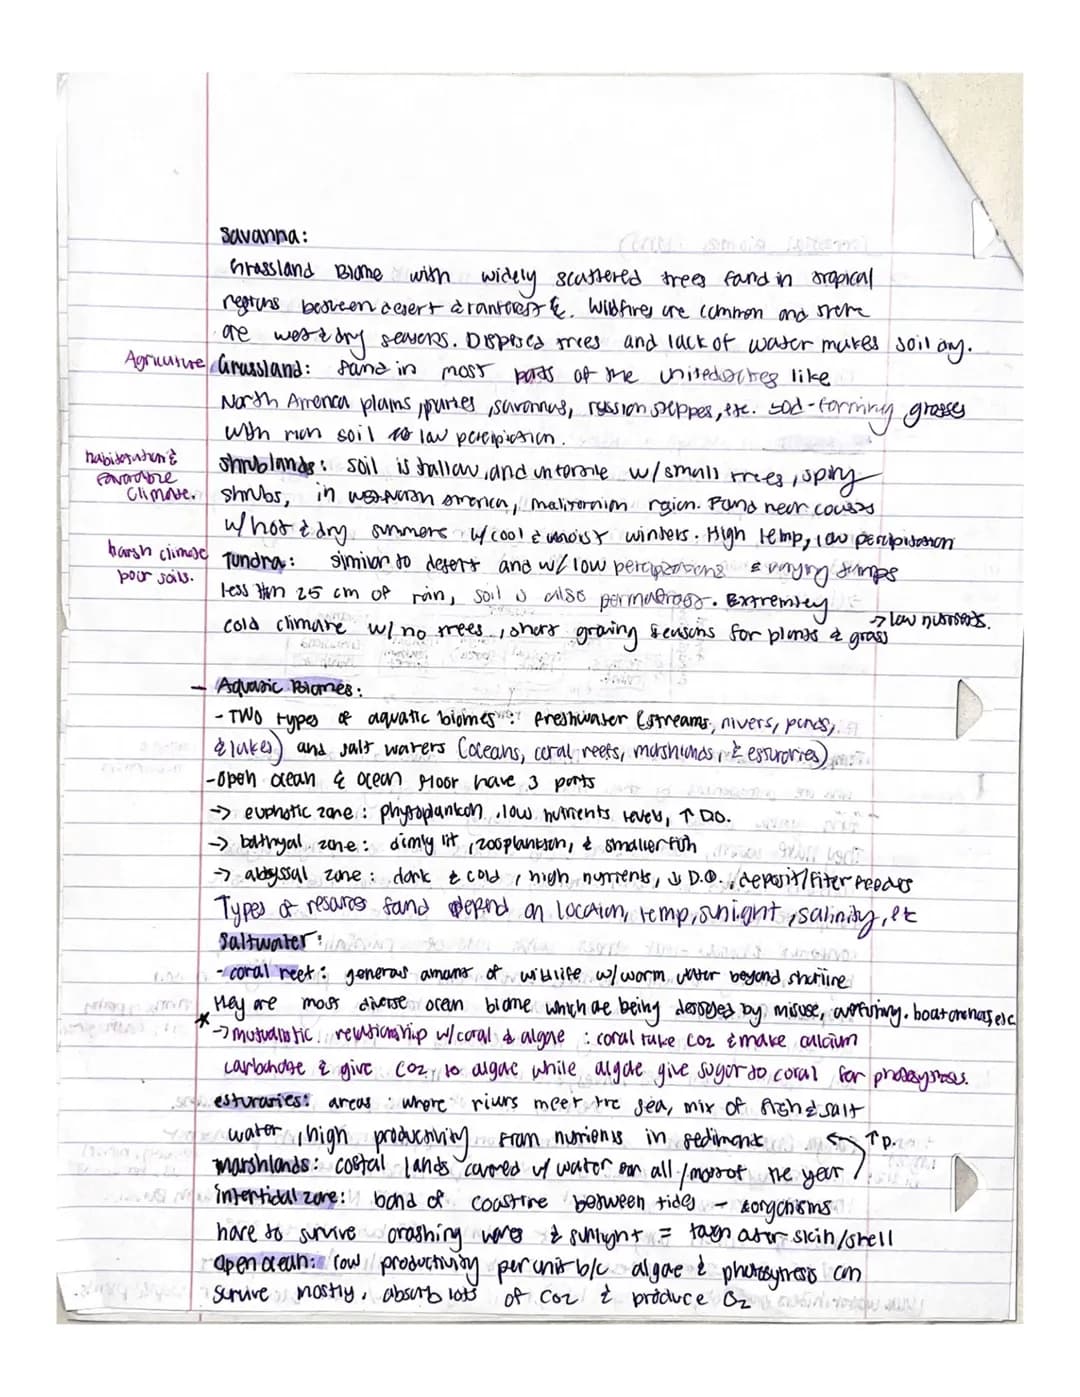 Savanna:
Grassland Biome with widely scattered trees found in tropical
regions between desert & rainforest &. Wildfires are common and there
are wet & dry seasons. Dispersed trees and lack of water makes soil dry.
Agriculture Grassland: found in most parts of the united states like
North America plains, , savannas, russion steppes, etc. sod-forming grasses
with rich soil low
habitation & favorable climate.
shrublands: soil is shallow, and unfertile w/ small trees, spiny
shrubs, in western america, region. Found near coasts
w/ hot & dry summers w/ cool & moist winters. High temp, low
harsh climate poor soils.
Tundra: similar to desert and w/ low & varying temps
less than 25 cm of rain, soil is also permafrost. Extremely
→ low nutrients.
cold climate w/ no trees, short growing seasons for plants & grass
- Aquatic Biomes:
- TWO types of aquatic biomes: freshwater (streams, rivers, ponds,
& lakes) and salt waters (oceans, coral reefs, marshlands, & esturaries)
- Open ocean & ocean floor have 3 parts
→ euphotic zone: low nutrients levels, ↑ DO.
→ bathyal zone: dimly lit, zooplankton, & smaller fish
→ abyssal zone: dark & cold, high nutrients, ↓ D.O., deposit/filter feeders
Types of found depend on location, temp, sunlight, salinity, etc
Saltwater:
- coral reef: generous amount of wildlife w/ warm water beyond shoreline
they are most diverse ocean biome which are being destroyed by misuse, overfishing, boat anchors, etc
* → mutualistic relationship w/ coral & algae: coral take CO2 & make calcium
carbonate & give CO2 to algae while algae give sugar to coral for photosynthesis.
esturaries: areas where rivers meet the sea, mix of fresh & salt
water, high productivity from nutrients in sediments
↑ p.
marshlands: costal lands covered w/ water on all/most of the year
intertidal zone: band of between tides - & organisms
have to survive crashing waves & sunlight = skin/shell
open ocean: low productivity per unit b/c algae & photosynthesis can
survive mostly, absorb lots of CO2 & produce O2